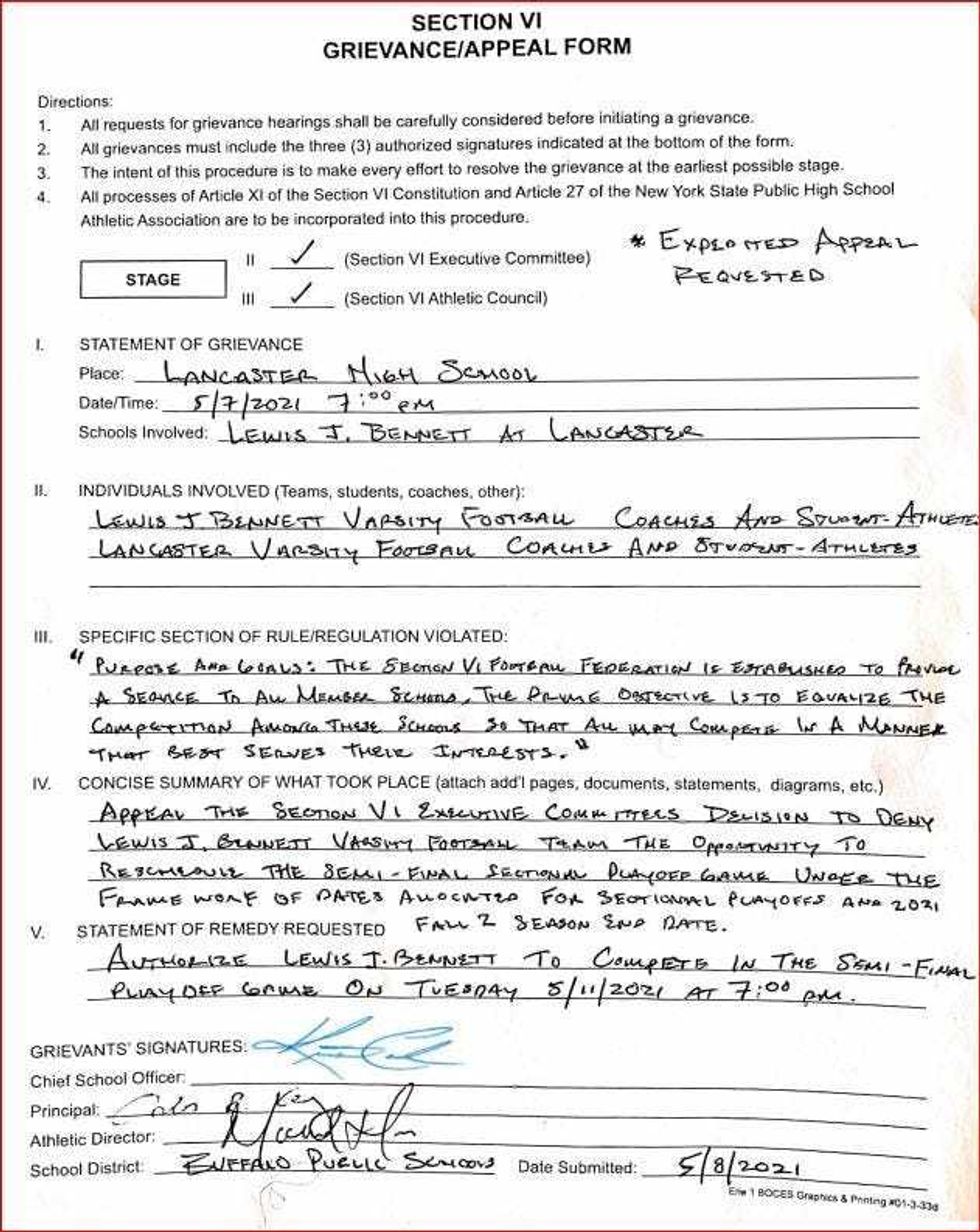 SECTION VI
GRIEVANCE/APPEAL FORM
Directions:
1. All requests for grievance hearings shall be carefully considered before initiating a grievance.
2. All grievances must include the three (3) authorized signatures indicated at the bottom of the form.
3. The intent of this procedure is to make every effort to resolve the grievance at the earliest possible stage.
4. All processes of Article XI of the Section VI Constitution and Article 27 of the New York State Public High School
Athletic Association are to be incorporated into this procedure.
* EXPEDITED APPEAL
REQUESTED
STAGE
II ✓ (Section VI Executive Committee)
III ✓ (Section VI Athletic Council)
I. STATEMENT OF GRIEVANCE
Place: LANCASTER HIGH SCHOOL
Date/Time: 5/7/2021 7:00 PM
Schools Involved: LEWIS J. BENNETT AT LANCASTER
II. INDIVIDUALS INVOLVED (Teams, students, coaches, other):
LEWIS J BENNETT VARSITY FOOTBALL COACHES AND STUDENT-ATHLETES
LANCASTER VARSITY FOOTBALL COACHES AND STUDENT-ATHLETES
III. SPECIFIC SECTION OF RULE/REGULATION VIOLATED:
"PURPOSE AND GOALS: THE SECTION VI FOOTBALL FEDERATION IS ESTABLISHED TO PROVIDE
A SERVICE TO ALL MEMBER SCHOOLS, THE PRIME OBJECTIVE IS TO EQUALIZE THE
COMPETITION AMONG THESE SCHOOLS SO THAT ALL MAY COMPETE IN A MANNER
THAT BEST SERVES THEIR INTERESTS."
IV. CONCISE SUMMARY OF WHAT TOOK PLACE (attach add'l pages, documents, statements, diagrams, etc.)
APPEAL THE SECTION VI EXECUTIVE COMMITTEES DECISION TO DENY
LEWIS J. BENNETT VARSITY FOOTBALL TEAM THE OPPORTUNITY TO
RESCHEDULE THE SEMI-FINAL SECTIONAL PLAYOFF GAME UNDER THE
FRAME WORK OF DATES ALLOCATED FOR SECTIONAL PLAYOFFS AND 2021
FALL 2 SEASON END DATE.
V. STATEMENT OF REMEDY REQUESTED
AUTHORIZE LEWIS J. BENNETT TO COMPETE IN THE SEMI-FINAL
PLAYOFF GAME ON TUESDAY 5/11/2021 AT 7:00 PM.
GRIEVANTS' SIGNATURES:
Chief School Officer:
Principal:
Athletic Director:
School District: BUFFALO PUBLIC SCHOOLS Date Submitted: 5/8/2021
Erie 1 BOCES Graphics & Printing #01-3-33d